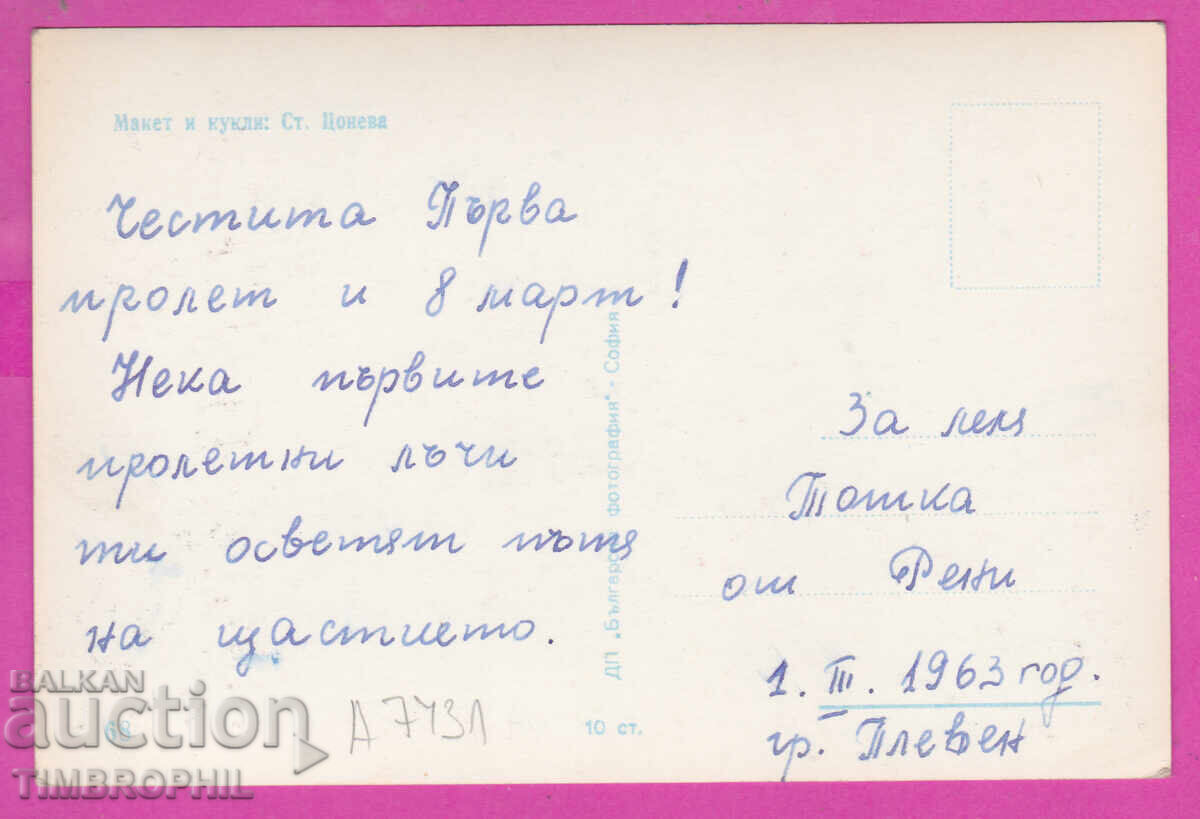 Макет и кукли: Ст. Цонева
Честита Първа
пролет и 8 март!
Нека първите
пролетни лъчи
ти осветят пътя
на щастието.
ДП „Българска фотография“ · София
За леля
Тошка
от Рени
1. III. 1963 год.
гр. Плевен
68
10 ст.
А 7431
BALKAN
auction
TIMBROPHIL